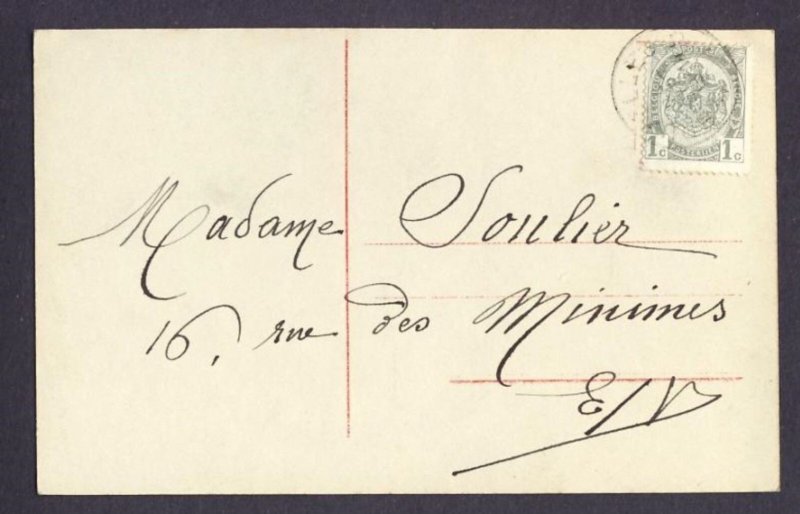 BELGIQUE
1c POSTERIJEN 1c
Madame Soulier
16, rue des Minimes
E/V